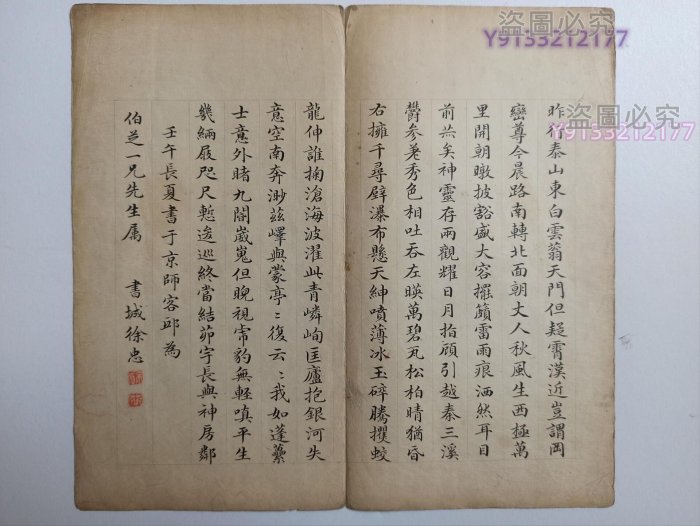 盜圖必究
Y9133212177
盜圖必究
Y9133212177
昨行泰山東白雲蓊天門但超霄漢近豈謂岡
巒尊今晨路南轉北面朝丈人秋風生西極萬
里開朝暾披豁感大容擺籟雷雨痕洒然耳目
前共矣神靈存兩觀耀日月指顧引越秦三溪
欝参差秀色相吐吞左暎萬碧瓦松柏晴猶昏
右擁千尋壁瀑布懸天紳噴薄冰玉碎騰攫蛟
龍伸誰掬滄海波濯此青嶙峋匡廬抱銀河失
意空南奔渺兹嶧與蒙亭〻復云〻我如蓬藁
士意外睹九閽嵗嵬但睨視豹無輕嗔平生
幾緉屐咫尺慙逡巡終當結茆宇長與神房鄰
壬午長夏書于京師客邸為
伯芝一兄先生属 書城徐忠